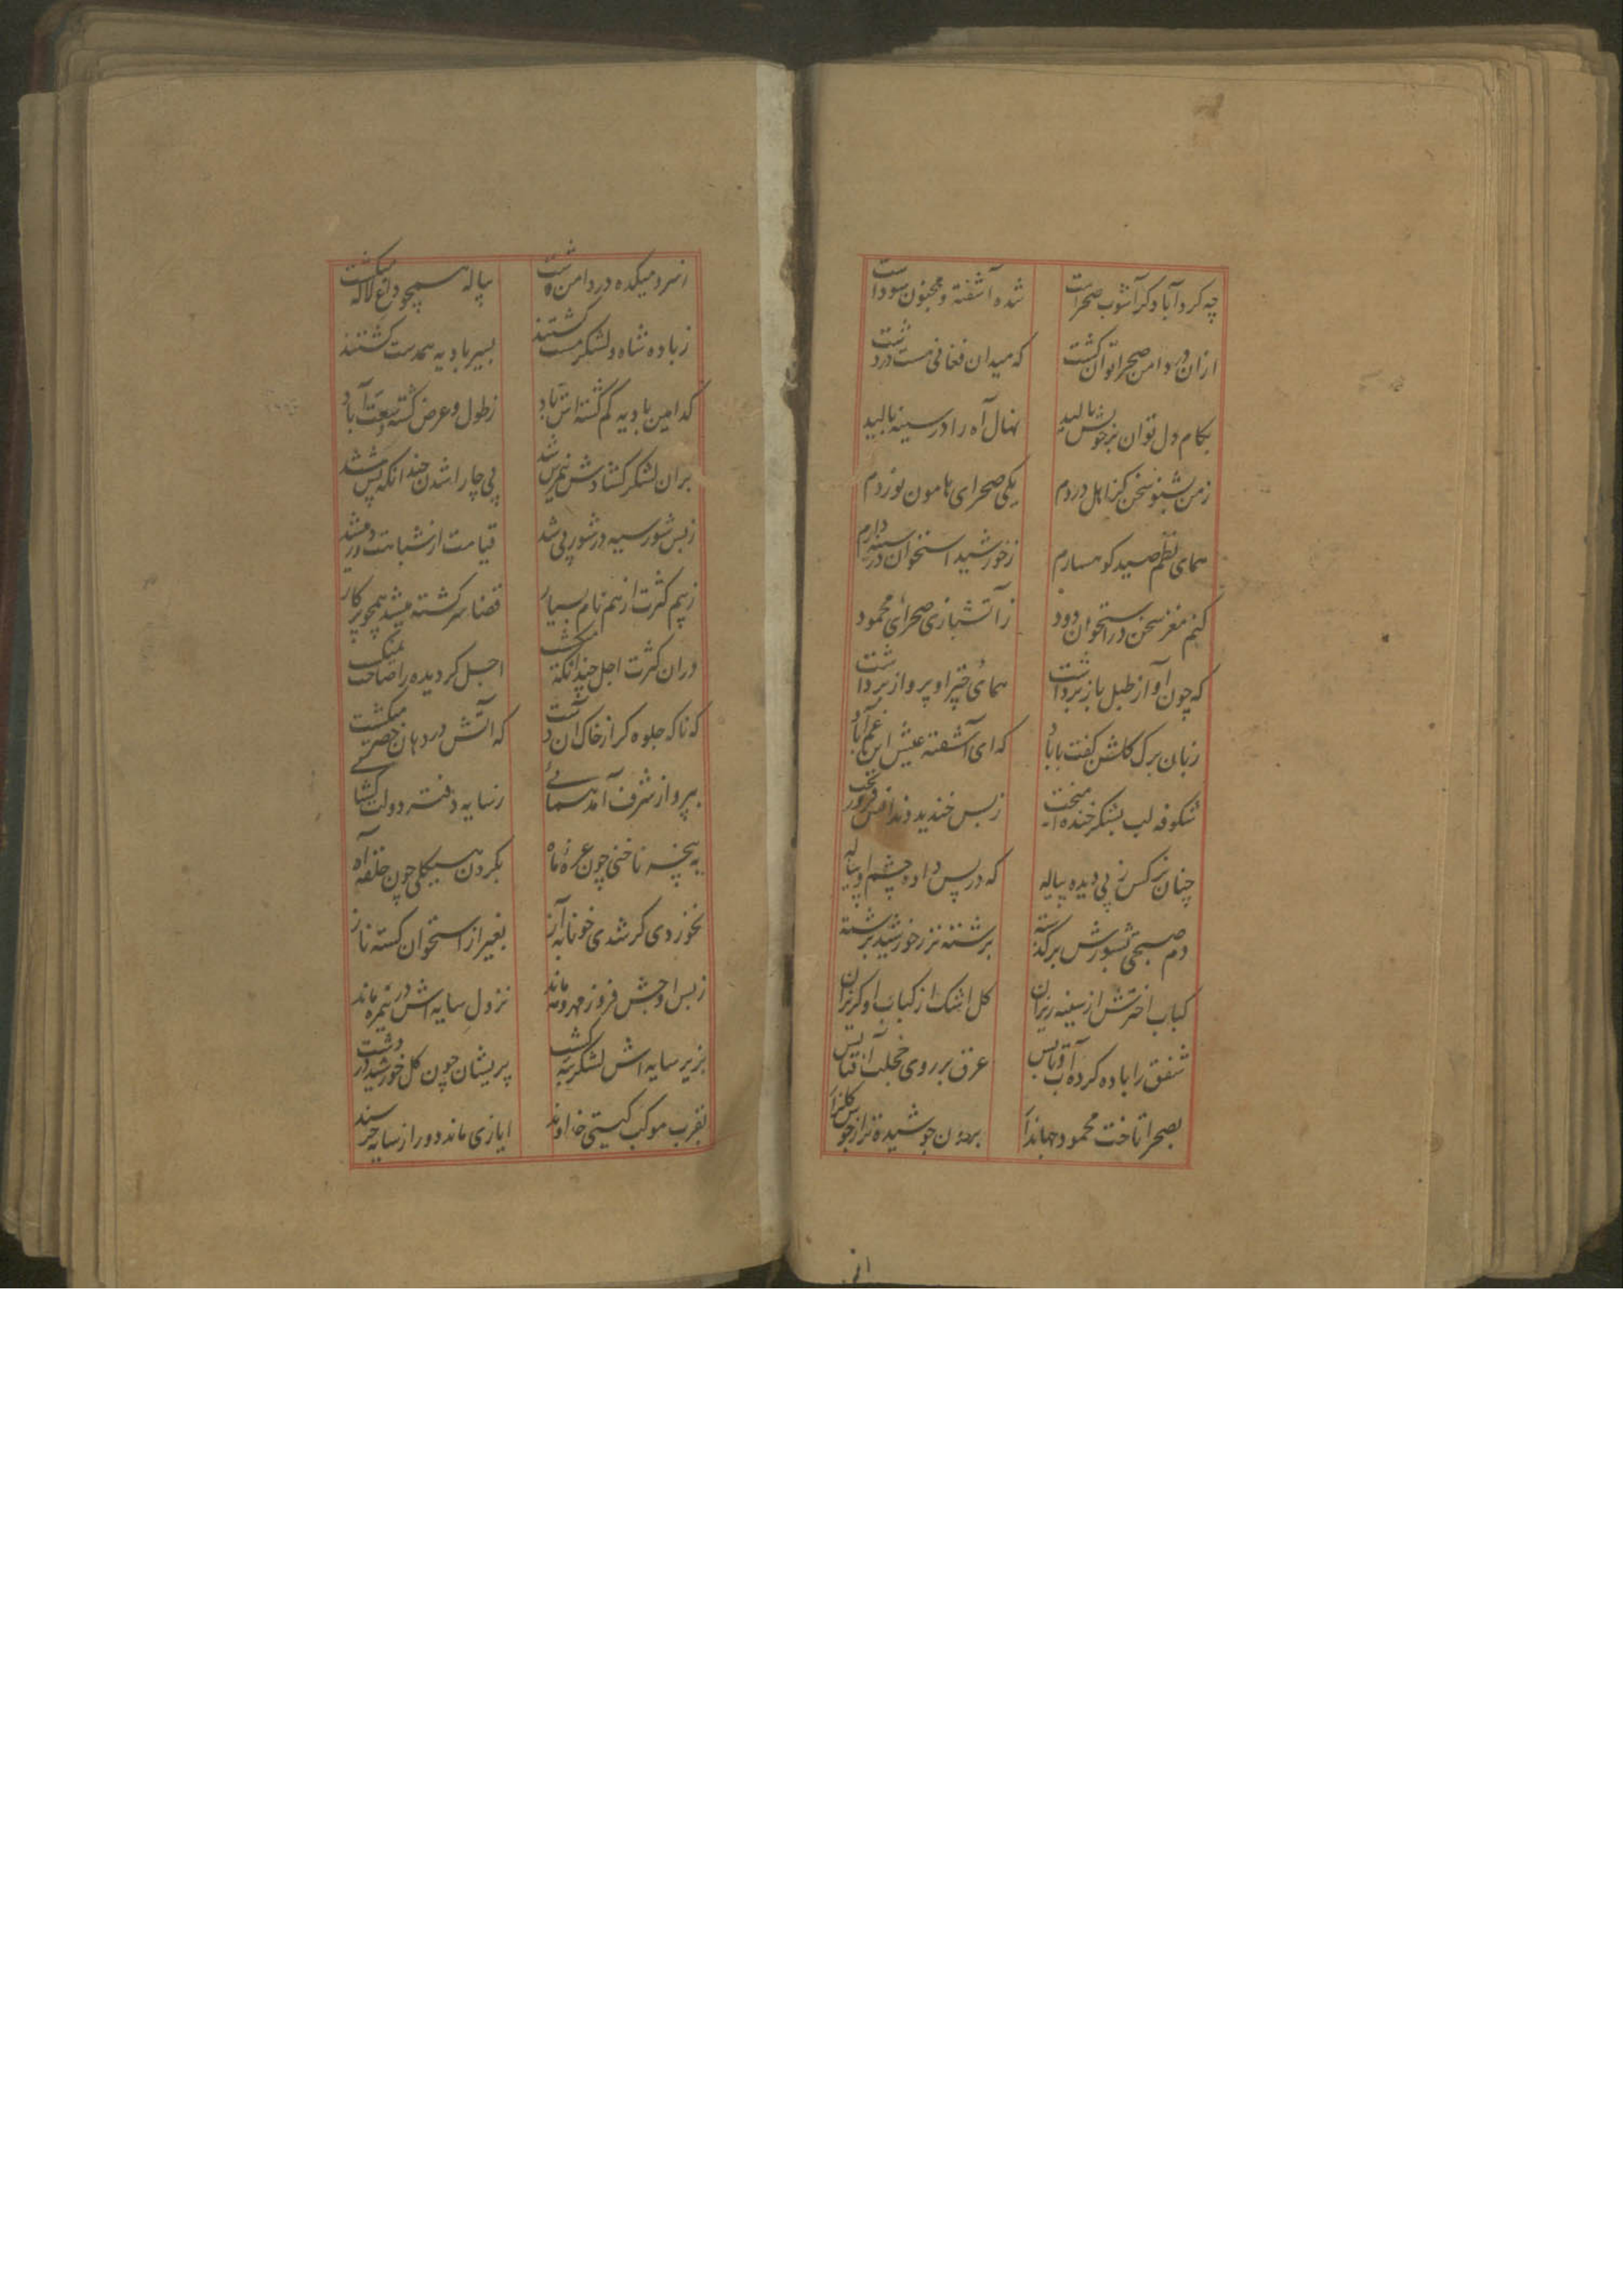 چه کرد آباد کر آشوب صحراست شده آشفته و مجنون سوداست
ازان رو دامن صحرا توان کشت که میدان فغانی هست در دشت
بکام دل توان بر خویش بالید نهال آه را در سینه بالید
زمن بشنو سخن کز اهل دردم یکی صحرای هامون نوردم
همای نظم صید کوهسارم زخورشید استخوان در سینه دارم
کنم مغز سخن در استخوان دود ز آتشبازی صحرای محمود
که چون آواز طبل باز برداشت همای چتر او پرواز برداشت
زبان برک کلشن کفت بابا که ای آشفته عیش این غم آباد
شکوفه لب بشکر خنده ز بس خندید دندانش
چنان نرکس ز پی دیده پیاله که در پس داده چشم او پیاله
دم صبحی بشورش برکذشته برشته تر ز خورشید برشته
کباب اخترش از سینه ریزان کل اشک از کباب او کریزان
شفق را باده کرده آب و تابش عرق بر روی خجلت آفتابش
بصحرا تاخت محمود جهاندار برون جوشیده تر از جوش کلزار
از سرو میکده در دامن دشت پیاله همچو داغ لاله میکشت
زباده شاه و لشکر مست کشتند بسیر بادیه همدست کشتند
کدامین بادیه کم کشته اش باد زطول و عرض کشته وسعت آباد
بران لشکر کشادش نیم رس شد پی جا را شدن چندانکه پس شد
زبس شور سیه در شور پی شد قیامت از شباهت در میشد
زبیم کثرت از هم نام بسیار قضا سرکشته میشد همچو پرکار
دران کثرت اجل چندانکه میکشت اجل کردیده را صاحب نمیکشت
که ناکه جلوه کر از خاک آن دشت که آتش در دهان خضر میکشت
بپرواز شرف آمد همائے زسایه دفتر دولت کشائے
به پنجه ناخنی چون غره ماه بکردن هیکلی چون حلقه آه
نخوردی کر شدی خونابه آز بغیر از استخوان کشته ناز
زبس اوجش فروز مهر و مه ماند نزول سایه اش در نیمره ماند
بزیر سایه اش لشکر کشیده پریشان چون کل خورشید در دشت
بقرب موکب کیتی خداوند ایازی ماند دور از سایه خرسند